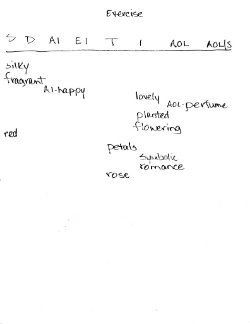 Exercise
S D AI EI T I AOL AOL/S
silky
fragrant
AI-happy
lovely
AOL-perfume
planted
flowering
red
petals
symbolic
romance
rose